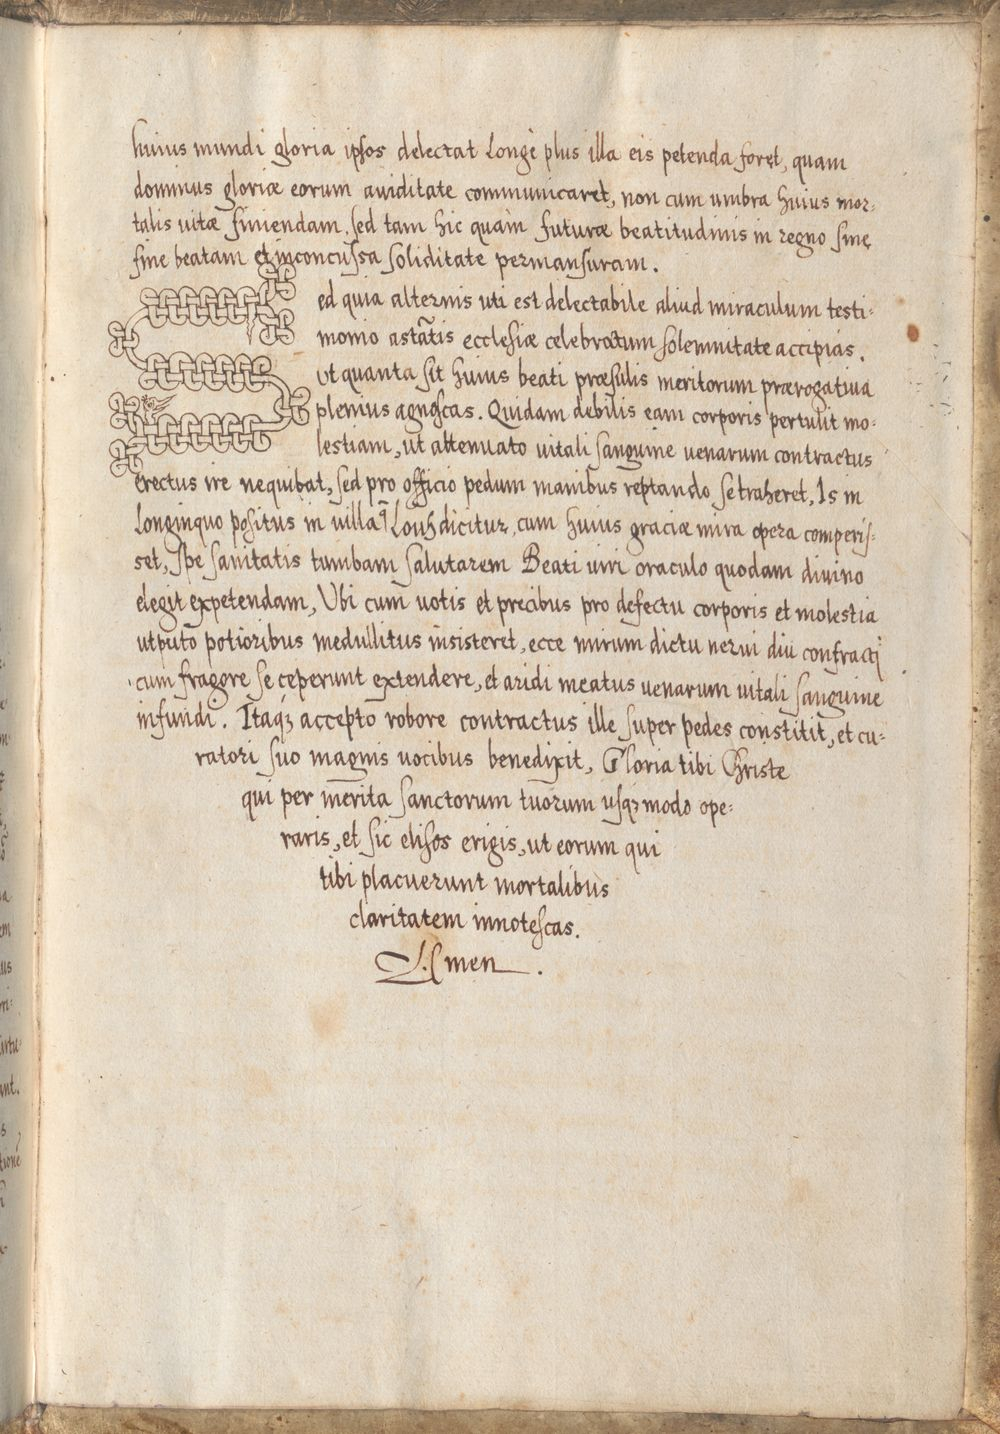 huius mundi gloria ipsos delectat longè plus illa eis petenda foret, quam
dominus gloriæ eorum auiditate communicaret, non cum umbra huius mor:
talis uitæ finiendam, sed tam hic quàm futuræ beatitudinis in regno sine
fine beatam et inconcussa soliditate permansuram.
Sed quia alternis uti est delectabile aliud miraculum testi:
monio astātis ecclesiæ celebratum solemnitate accipias,
ut quanta sit huius beati præsulis meritorum prærogatiua
plenius agnoscas. Quidam debilis eam corporis pertulit mo:
lestiam, ut attenuato uitali sanguine uenarum contractus
erectus ire nequibat, sed pro officio pedum manibus reptando se traheret, Is in
longinquo positus in uilla dicitur, cum huius graciæ mira opera comperis:
set, spe sanitatis tumbam salutarem Beati uiri oraculo quodam diuino
elegit expetendam, Vbi cum uotis et precibus pro defectu corporis et molestia
ut puto potioribus medullitus insisteret, ecce mirum dictu nerui diu confracti
cum fragore se ceperunt extendere, et aridi meatus uenarum uitali sanguine
infundi. Itaqꝫ accepto robore contractus ille super pedes constitit, et cu:
ratori suo magnis uocibus benedixit, Gloria tibi Christe
qui per merita sanctorum tuorum usqꝫ modo ope:
raris, et sic elisos erigis, ut eorum qui
tibi placuerunt mortalibus
claritatem innotescas.
Amen.